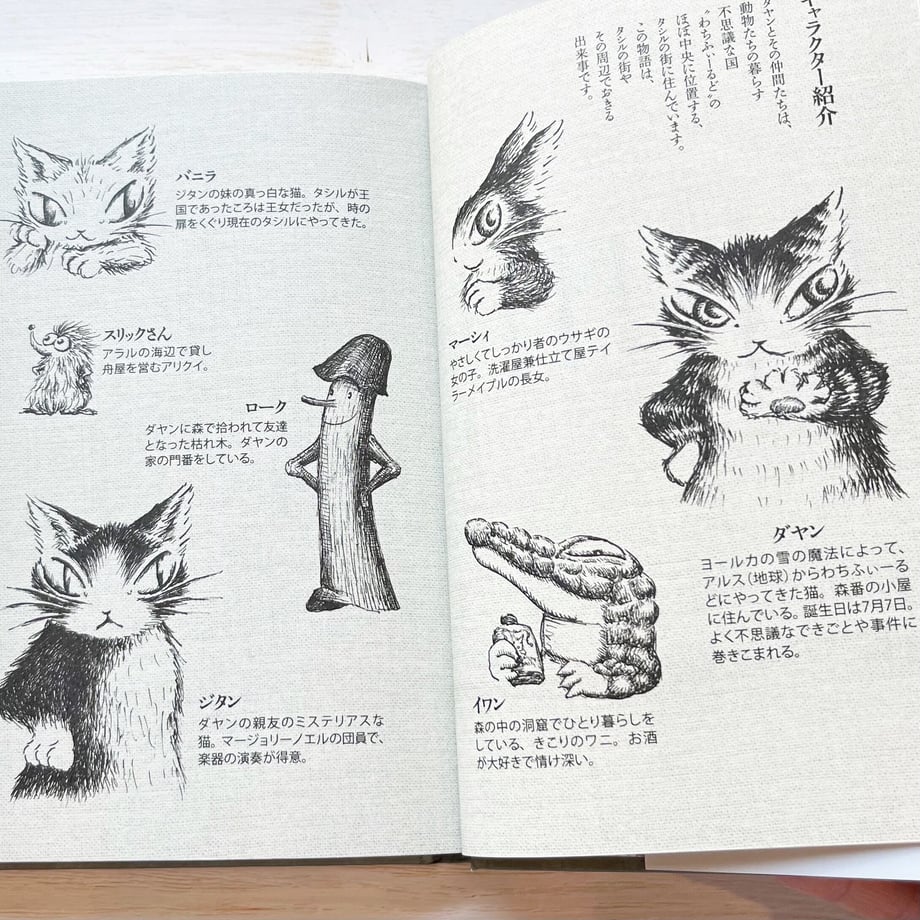 キャラクター紹介
ダヤンとその仲間たちは、
動物たちの暮らす
不思議な国
“わちふぃーるど”の
ほぼ中央に位置する、
タシルの街に住んでいます。
この物語は、
タシルの街や
その周辺でおきる
出来事です。
ダヤン
ヨールカの雪の魔法によって、
アルス(地球)からわちふぃーる
どにやってきた猫。森番の小屋
に住んでいる。誕生日は7月7日。
よく不思議なできごとや事件に
巻きこまれる。
マーシィ
やさしくてしっかり者のウサギの
女の子。洗濯屋兼仕立て屋テイ
ラーメイプルの長女。
イワン
森の中の洞窟でひとり暮らしを
している、きこりのワニ。お酒
が大好きで情け深い。
バニラ
ジタンの妹の真っ白な猫。タシルが王
国であったころは王女だったが、時の
扉をくぐり現在のタシルにやってきた。
スリックさん
アラルの海辺で貸し
舟屋を営むアリクイ。
ローク
ダヤンに森で拾われて友達
となった枯れ木。ダヤンの
家の門番をしている。
ジタン
ダヤンの親友のミステリアスな
猫。マージョリーノエルの団員で、
楽器の演奏が得意。